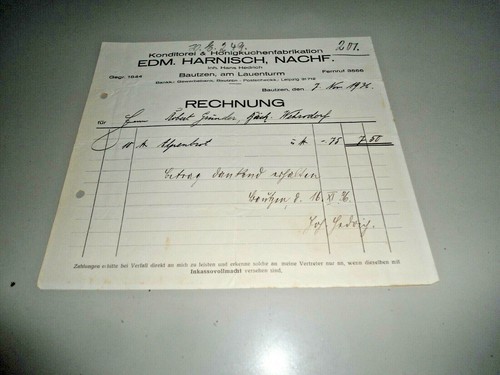 201.
Konditorei & Honigkuchenfabrikation
EDM. HARNISCH, NACHF.
Inh. Hans Hedrich
Gegr. 1844 Bautzen, am Lauenturm Fernruf 3888
Bautzen, den 7. Nov. 1936
RECHNUNG
für Herrn Robert Gründer, Bäck. Wehrsdorf
10 A. Alpenbrot à A. -75 7.50
Betrag dankend erhalten
Bautzen, d. 10. XI. 36
Hedrich.
Zahlungen bitte bei Verfall direkt an mich zu leisten und erkenne solche an meine Vertreter nur an, wenn dieselben mit
Inkassovollmacht versehen sind.